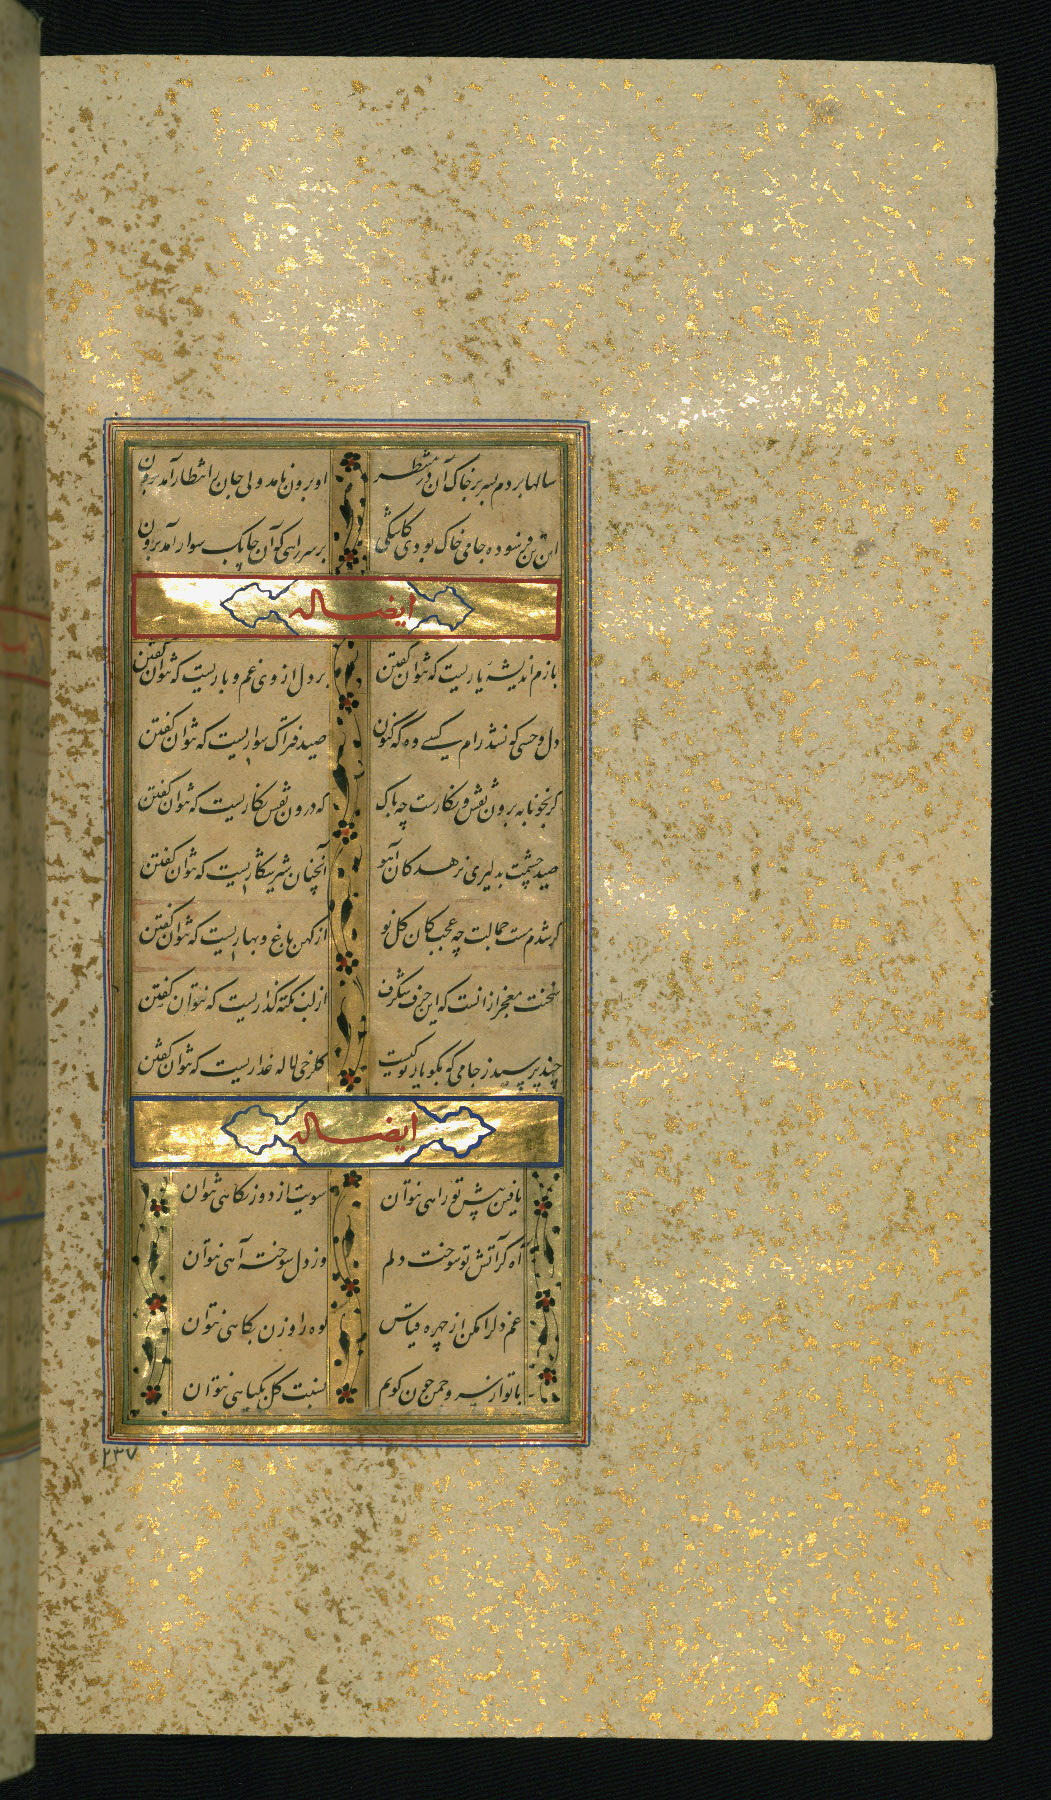 سالها بردم بسر بر خاک آن در منتظر
او برون نامد ولی جان ز انتظار آمد برون
این تن فرسوده جامی خاک بودی کاشکی
بر سر راهی کو آن چابک سوار آمد برون
ایضا له
بازم اندیشه یاریست که نتوان گفتن
بر دل از وی غم و باریست که نتوان گفتن
دل وحشی که نشد رام کسی وه که کنون
صید فتراک سواریست که نتوان گفتن
گر بخونابه برون نقش و نگارست چه باک
که درون نقش نگاریست که نتوان گفتن
صید چشمت بدلیری نرهد کان آهو
آنچنان شیرشکاریست که نتوان گفتن
گر شدم مست جمالت چه عجب کان گل نو
از کهن باغ و بهاریست که نتوان گفتن
سخنت معجز از آنست که این حرف شگرف
از لب نکته گذاریست که نتوان گفتن
چند پرسید ز جامی که بگو یار تو کیست
گلرخی لاله عذاریست که نتوان گفتن
ایضا له
یافتن پیش تو راهی نتوان
سویت از دور نگاهی نتوان
آه کز آتش تو سوخت دلم
وز دل سوخته آهی نتوان
غم دل را مکن از چهره قیاس
کوه را وزن بکاهی نتوان
با تو از سرو و چمن چون گویم
نسبت گل بگیاهی نتوان
۲۳۷